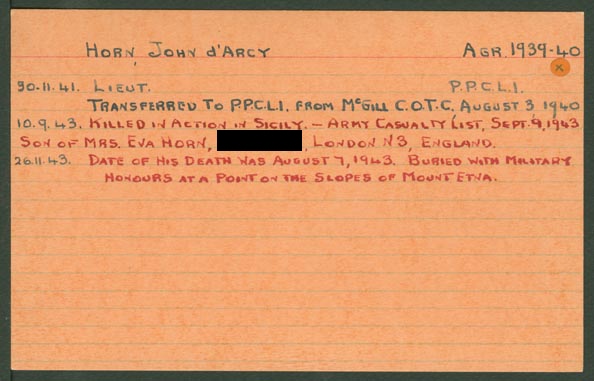 HORN, JOHN d'ARCY AGR. 1939-40
x
30.11.41. LIEUT. P.P.C.L.I.
TRANSFERRED TO P.P.C.L.I. FROM McGILL C.O.T.C. AUGUST 3 1940
10.9.43. KILLED IN ACTION IN SICILY. - ARMY CASUALTY LIST, SEPT. 9, 1943
SON OF MRS. EVA HORN, , LONDON N3, ENGLAND.
26.11.43. DATE OF HIS DEATH WAS AUGUST 7, 1943. BURIED WITH MILITARY
HONOURS AT A POINT ON THE SLOPES OF MOUNT ETNA.